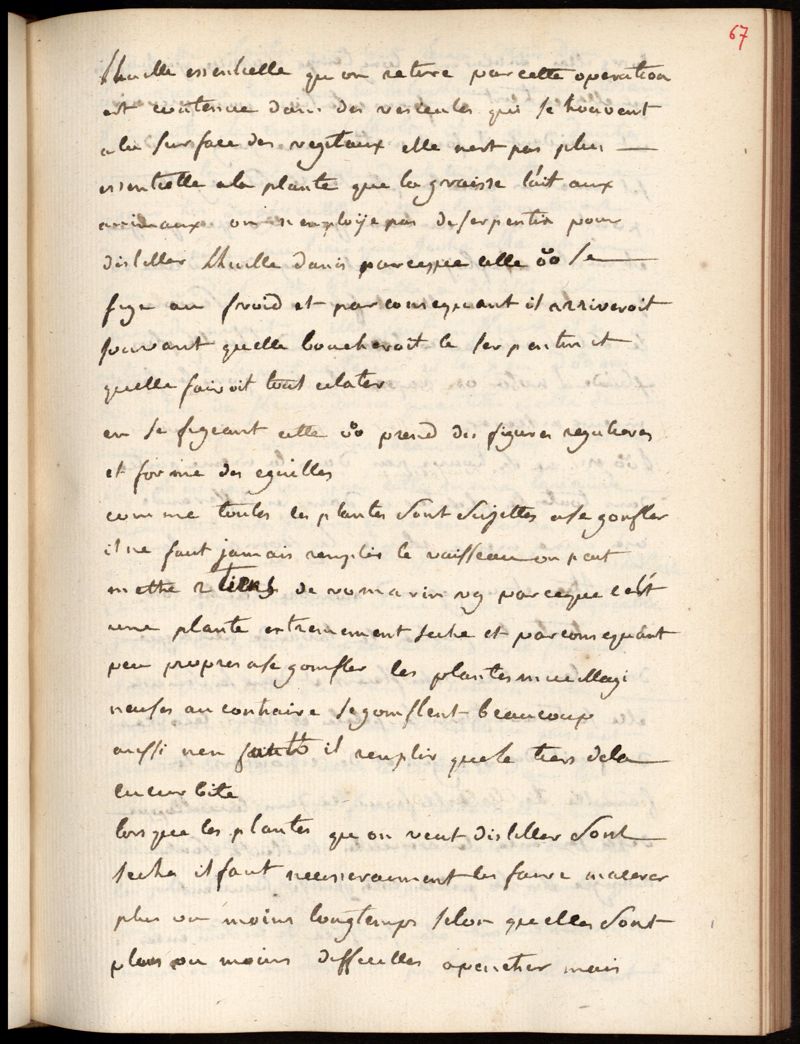 67
lhuille essentielle qu on retire par cette operation
est contenue dans des vesicules qui se trouvent
a la surface des vegetaux elle nest pas plus
essentielle a la plante que la graisse l'ait aux
animaux on n employe pas de serpentin pour
distiller lhuille danis parcesque celle °° se
fige au froid et par consequant il arriveroit
souvant quelle boucheroit le serpentin et
quelle fairoit tout eclater
en se figeant cette °° prend des figures regulieres
et forme des eguilles
comme toutes les plantes sont sujettes a se gonfler
il ne faut jamais remplir le vaisseau on peut
mettre 2 tiers de romarin vg parceque c'est
une plante extremement seche et par consequant
peu propres a se gomfler les plantes mucillagi
neuses au contraire se gomflent beaucoup
aussi nen faut il remplir que le tiers de la
cucurbite
lorsque les plantes qu on veut distiller sont
seche il faut necesseraiment les faire macerer
plus ou moins longtemps selon quelles sont
plus ou moins difficilles a penetrer mais